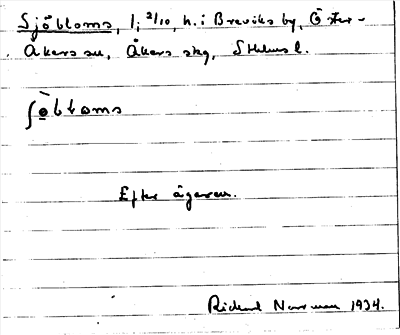 Sjöbloms, 1; 2/10, h. i Breviks by, Öster-
Åkers sn, Åkers skg, Sthlms l.
ʃö̀bloms
Efter ägaren.
Rickard 1934.